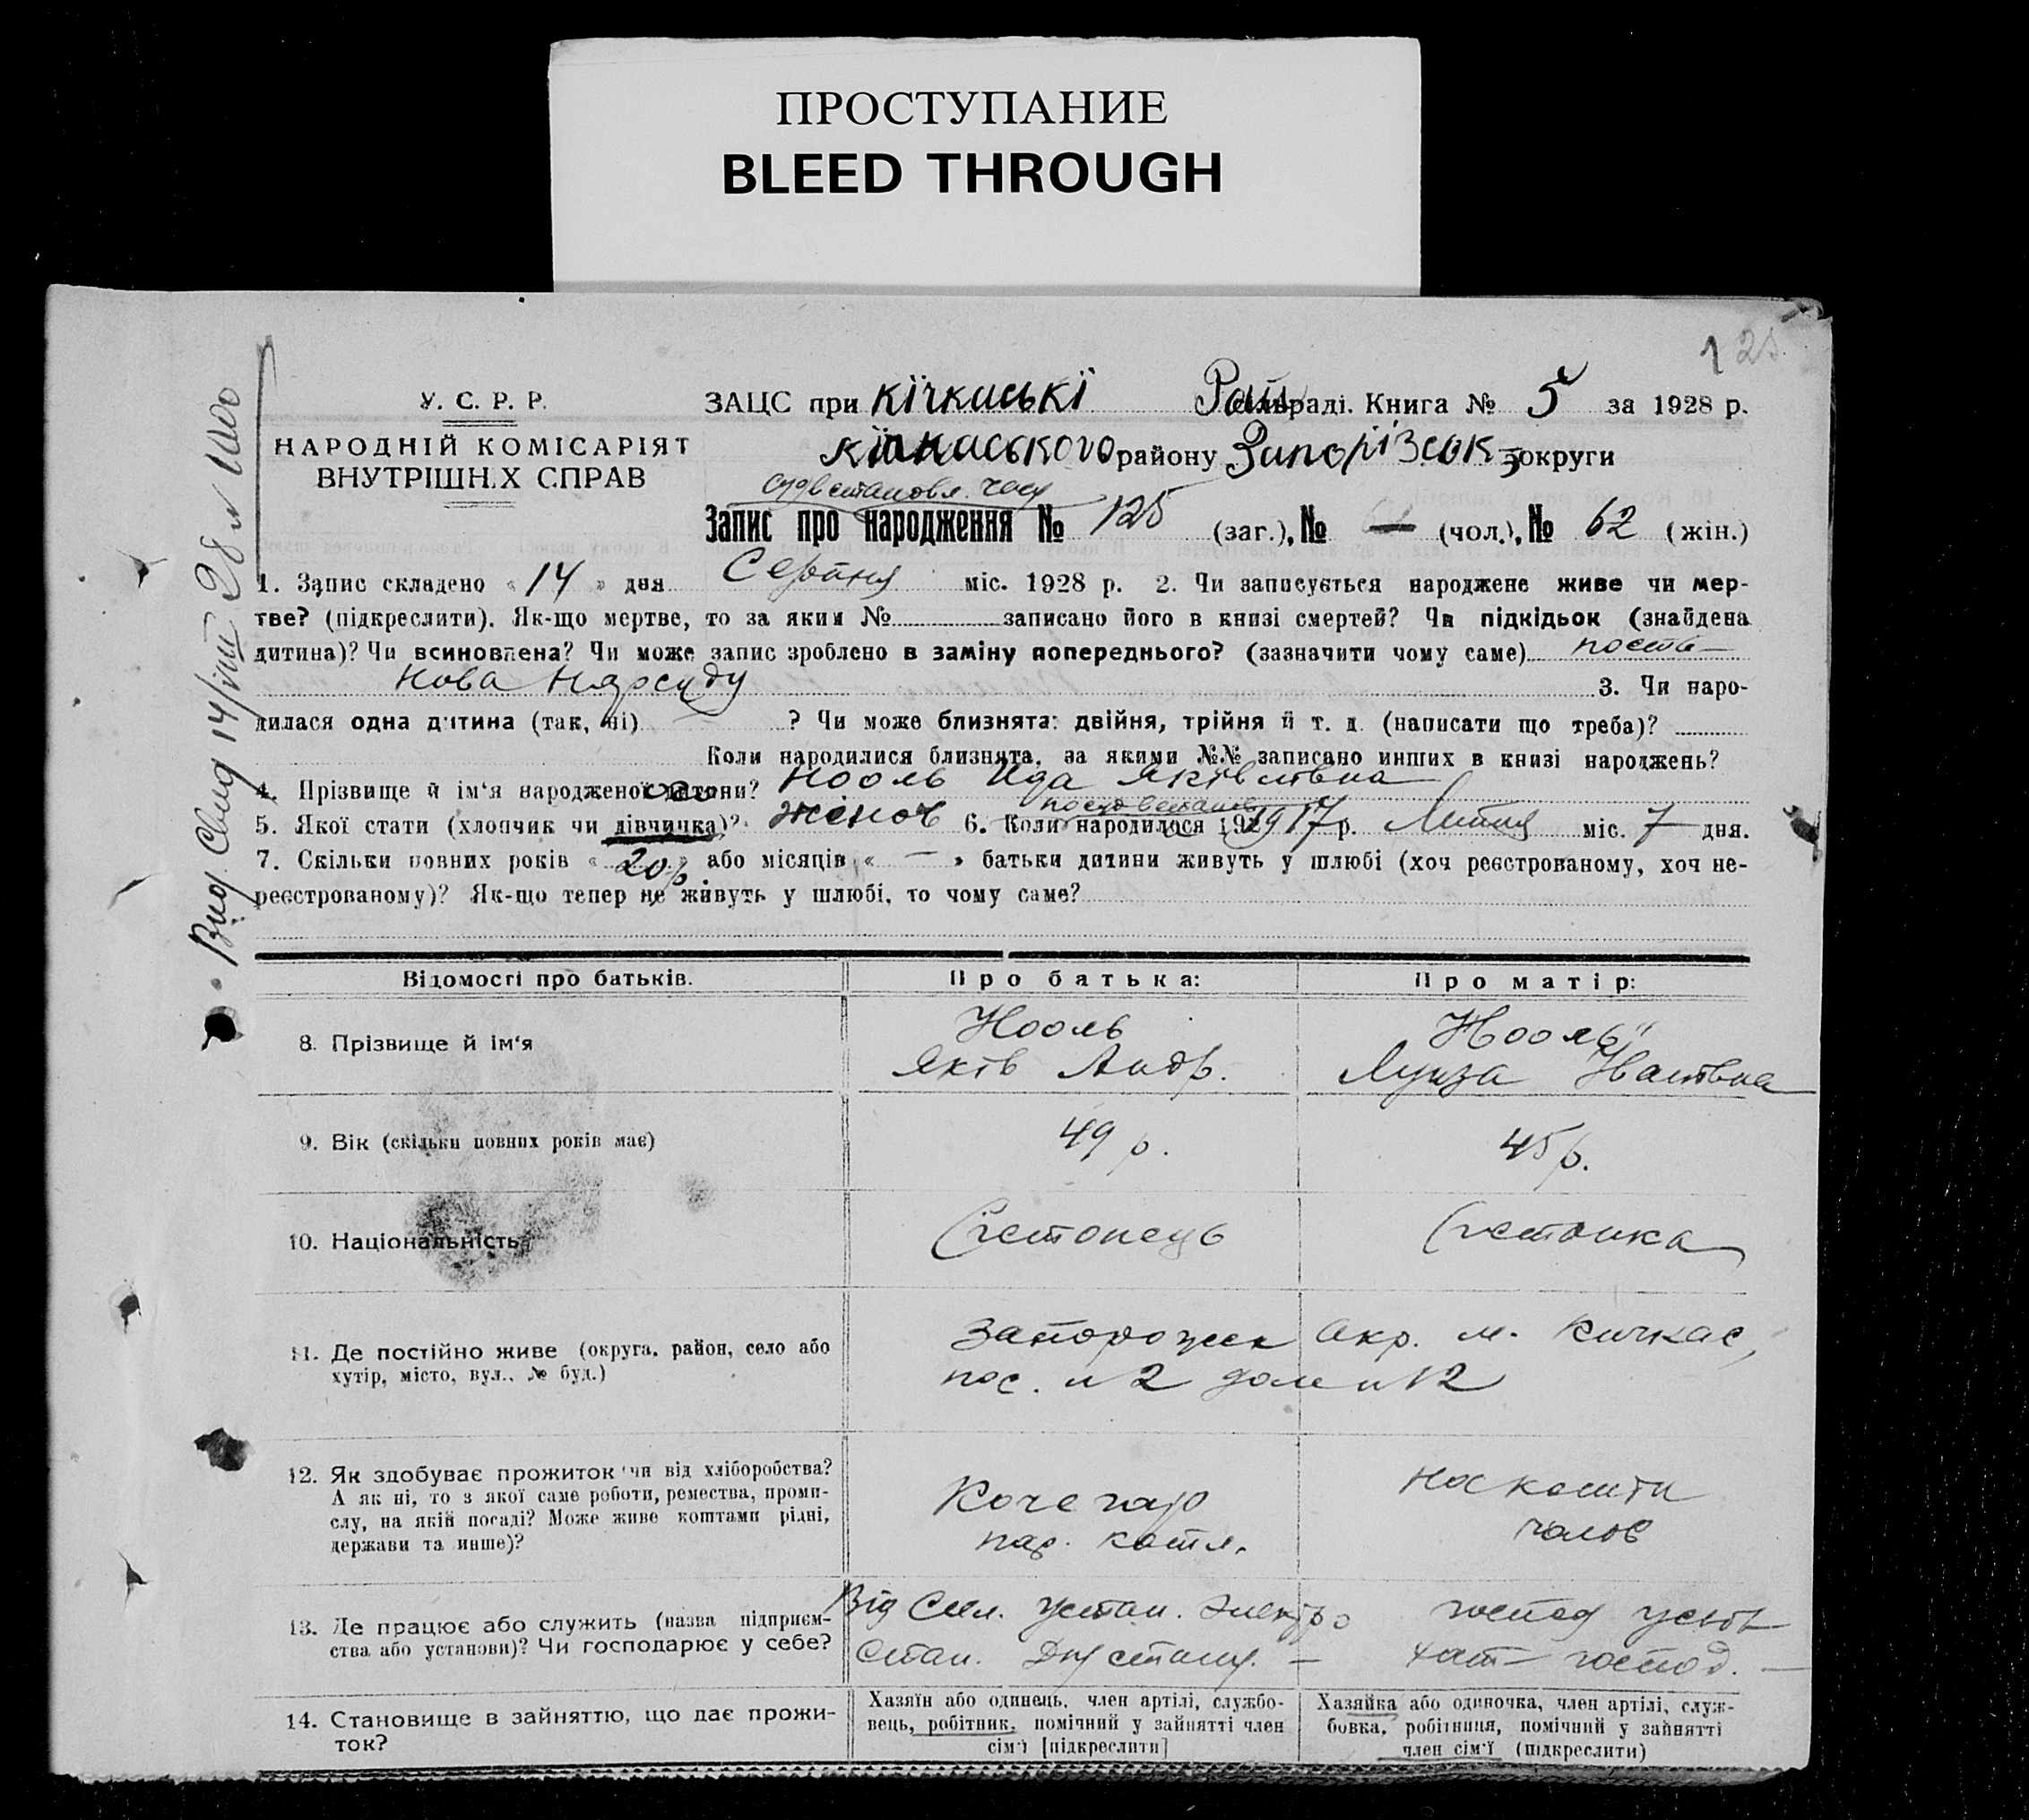 ПРОСТУПАНИЕ
BLEED THROUGH
125
У. С. Р. Р.
НАРОДНІЙ КОМІСАРІЯТ
ВНУТРІШНІХ СПРАВ
ЗАЦС при Кічкаські Рай раді. Книга № 5 за 1928 р.
Кічкаського району Запорізськ округи
Запис про народження № 125 (заг.), № — (чол.), № 62 (жін.)
1. Запис складено « 14 » дня Серпня міс. 1928 р. 2. Чи записується народжене живе чи мер-
тве? (підкреслити). Як-що мертве, то за яким № записано його в книзі смертей? Чи підкідьок (знайдена
дитина)? Чи всиновлена? Чи може запис зроблено в заміну попереднього? (зазначити чому саме) поста-
нова Нарсуду 3. Чи наро-
дилася одна дитина (так, ні) — ? Чи може близнята: двійня, трійня й т. д. (написати що треба)?
Коли народилися близнята, за якими №№ записано инших в книзі народжень?
4. Прізвище й ім'я народженої дитини? Нооль Ида Яківлівна
5. Якої стати (хлопчик чи дівчинка)? жіноч 6. Коли народилося 1917 р. Липня міс. 7 дня.
7. Скільки повних років « 20 р. » або місяців « — » батьки дитини живуть у шлюбі (хоч реєстрованому, хоч не-
реєстрованому)? Як-що тепер не живуть у шлюбі, то чому саме?
Вид. Свид 14/VIII 28
Відомості про батьків.
Про батька:
Про матір:
8. Прізвище й ім'я
Нооль
Яків Андр.
Нооль
Луиза Іванівна
9. Вік (скільки повних років має)
49 р.
45 р.
10. Національність
Єстонець
Єстонка
11. Де постійно живе (округа, район, село або
хутір, місто, вул., № буд.)
Запорожск Окр. м. Кичкас,
пос. № 2 дом № 12
12. Як здобуває прожиток чи від хліборобства?
А як ні, то з якої саме роботи, ремества, проми-
слу, на якій посаді? Може живе коштами рідні,
держави та инше)?
Кочегар
пар. котл.
на кошти
чолов
13. Де працює або служить (назва підприєм-
ства або установи)? Чи господарює у себе?
Від Сил. устан. Электро
стан.
хат — господ. —
14. Становище в зайняттю, що дає прожи-
ток?
Хазяїн або одинець, член артілі, службо-
вець, робітник, помічний у зайнятті член
сім'ї [підкреслити]
Хазяйка або одиночка, член артілі, служ-
бовка, робітниця, помічний у зайнятті
член сім'ї (підкреслити)